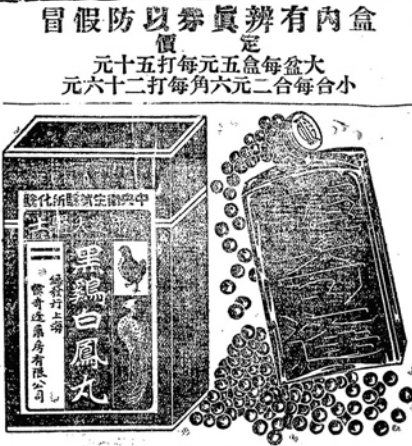 盒內有辨眞券以防假冒
定價
大盆每盒五元每打五十元
小合每合二元六角每打二十六元
中央衛生試驗所化驗
黑鷄白鳳丸
總發行上海
藥房有限公司